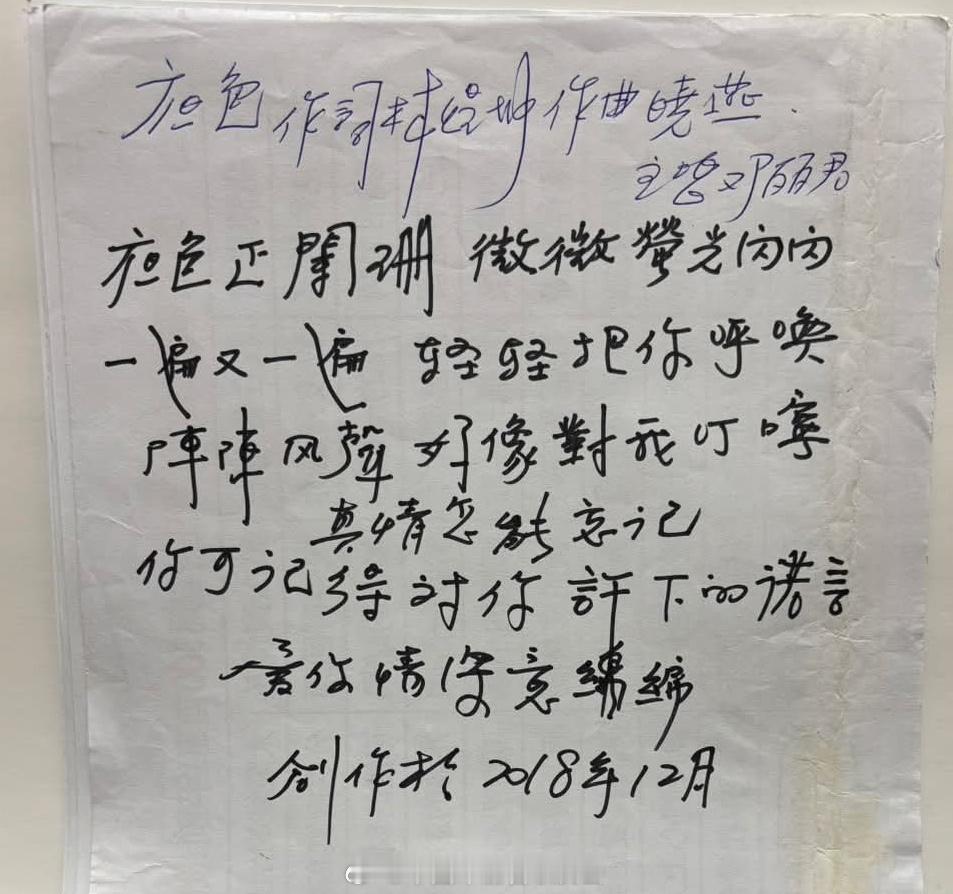 夜色 作詞林煌坤 作曲曉燕.
主唱邓丽君
夜色正闌珊 微微螢光闪闪
一遍又一遍 轻轻把你呼喚
陣陣风聲 好像對我叮嚀
真情怎能忘记
你可记得对你許下的諾言
爱你情深意綿綿
创作於2018年12月